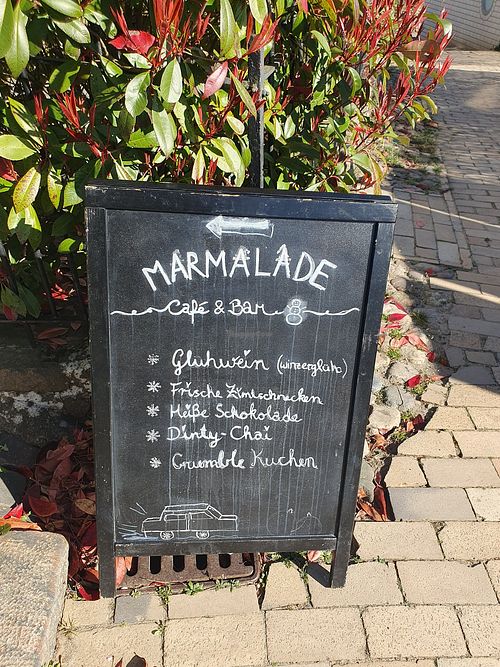 MARMALADE
Café & Bar 8
Glühwein (winzerglühw)
Frische Zimtschnecken
Heiße Schokolade
Dirty-Chai
Crumble Kuchen